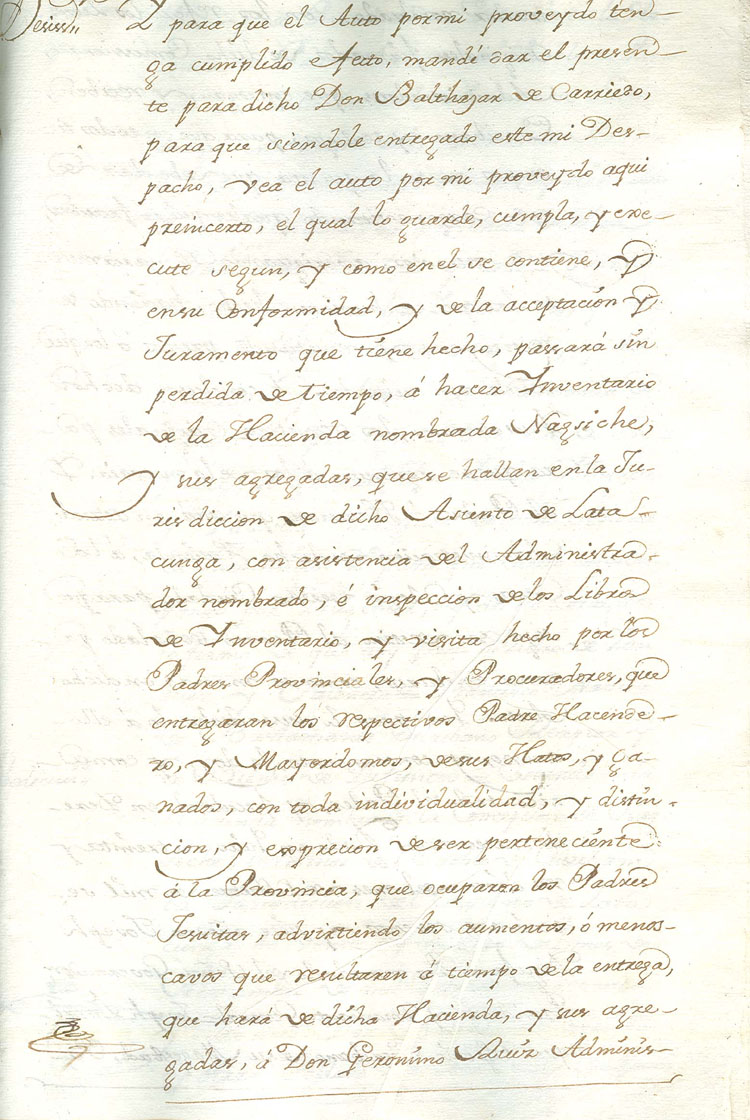 Y para que el Auto por mi proveydo ten-
ga cumplido efecto, mandé dar el presen-
te para dicho Don Balthazar de Carriedo,
para que siendole entregado este mi Des-
pacho, vea el auto por mi proveydo aqui
preincerto, el qual lo guarde, cumpla, y exe-
cute segun, y como en el se contiene, y
en su Conformidad, y de la acceptación y
Juramento que tiene hecho, passará sin
perdida de tiempo, á hacer Inventario
de la Hacienda nombrada Nagsiche,
y sus agregadas, que se hallan en la Ju-
risdiccion de dicho Asiento de Lata-
cunga, con asistencia del Administra-
dor nombrado, é inspeccion de los Libros
de Inventario, y visita hecho por los
Padres Provinciales, y Procuradores, que
entregaran los respectivos Padre Hacende-
ro, y Mayordomos, de sus Hatos, y Ga-
nados, con toda individualidad, y distin-
cion, y exprecion de ser perteneciente
á la Provincia, que ocuparen los Padres
Jesuitas, advirtiendo los aumentos, ó menos-
cavos que resultaren á tiempo de la entrega,
que hará de dicha Hacienda, y sus agre-
gadas, á Don Geronimo Ruiz Adminis-